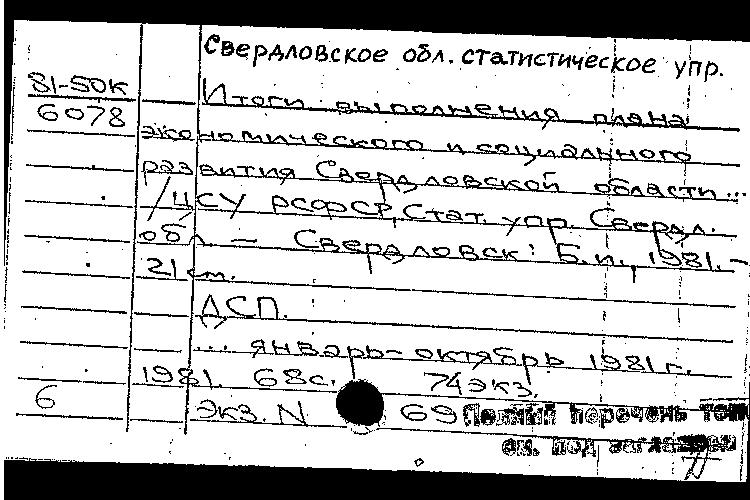 Свердловское обл. статистическое упр.
81-50к
6078
Итоги выполнения плана
экономического и социального
развития Свердловской области...
/ЦСУ РСФСР, Стат. упр. Свердл.
обл. — Свердловск: Б.и., 1981.—
21 см.
ДСП.
... январь-октябрь 1981 г.
1981. 68с. 74экз.
6
Экз. N 69
Полный перечень
см. под заглавием